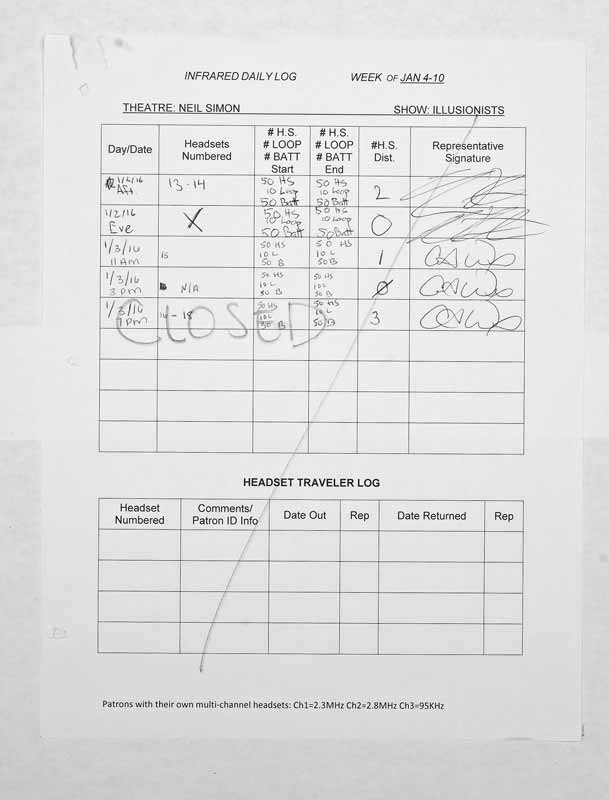 INFRARED DAILY LOG WEEK OF JAN 4-10
THEATRE: NEIL SIMON SHOW: ILLUSIONISTS
Day/Date
Headsets
Numbered
# H.S.
# LOOP
# BATT
Start
# H.S.
# LOOP
# BATT
End
#H.S.
Dist.
Representative
Signature
Aft.
13-14
50 HS
10 Loop
50 Batt
50 HS
10 Loop
50 Batt
2
1/2/16
Eve
X
50 HS
10 Loop
50 Batt
50 HS
10 Loop
50 Batt
0
1/3/16
11 AM
15
50 HS
10 L
50 B
50 HS
10 L
50 B
1
1/3/16
3 pm
N/A
50 HS
10 L
50 B
50 HS
10 L
50 B
0
1/3/16
7 pm
16-18
50 HS
10L
50 B
50 HS
10 L
50 B
3
CLOSED
HEADSET TRAVELER LOG
Headset
Numbered
Comments/
Patron ID Info
Date Out
Rep
Date Returned
Rep
Patrons with their own multi-channel headsets: Ch1=2.3MHz Ch2=2.8MHz Ch3=95KHz